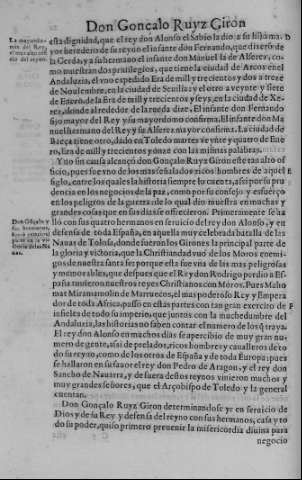 Don Gonçalo Ruyz Giron
La mayordo
mia del Rey,
esta dignidad, que el rey don Alonso el Sabio la dio a su hijo ma
yor heredero de su reyno el infante don Fernando, que dixeron de
la Cerda, y a su hermano el infante don Manuel la de Alferez, co-
mo muestran dos priuilegios, que tiene la ciudad de Arcos en el
Andaluzia, el vno expedido Era de mill y trecientos y dos a treze
de Nouiembre, en la ciudad de Seuilla: y el otro a veynte y siete
de Enero, de la Era de mill y trecientos y seys, en la ciudad de Xe-
rez, donde al rededor de la rueda dize. El infante don Fernando
fijo mayor del Rey y su mayordomo confirma. El infante don Ma
nuel hermano del Rey y su Alferez mayor confirma. La ciudad de
Baeça tiene otro, dado en Toledo martes veynte y quatro de Ene
ro, Era de mill y trecientos y nueue con las mismas palabras.
Y no sin causa alcançó don Gonçalo Ruyz Giron este tan alto of
ficio, pues fue vno de los mas señalados ricos hombres de aquel
siglo, entre los quales la historia siempre lo cuenta, assi por su pru
dencia en los negocios de la paz, como por su consejo y esfuerço
en los peligros de la guerra: de lo qual dio muestra en muchas y
grandes cosas que en sus dias se offrecieron. Primeramente se ha
Don Gõçalo y
sus hermanos,
lló con sus quatro hermanos en seruicio del rey don Alonso, y en
defensa de toda España, en aquella muy celebrada batalla de las
Nauas de Tolosa, donde fueron los Girones la principal parte de
la gloria y victoria, que la Christiandad vuo de los Moros enemi-
gos de nuestra santa fe: porque esta fue vna de las mas peligrosas
y memorables, que despues que el Rey don Rodrigo perdio a Es-
paña tuuieron nuestros reyes Christianos con Moros. Pues Maho
mat Miramamolin de Marruecos, el mas poderoso Rey y Empera
dor de toda Africa: passó en estas partes con tan gran exercito de
infieles de todo su imperio, que juntos con la muchedumbre del
Andaluzia, las historias no saben contar el numero de los q̃ traya.
El rey don Alonso en muchos dias se apercibio de muy gran nu-
mero de gente, assi de prelados, ricos hombres y caualleros de to
do su reyno, como de los otros de España y de toda Europa: pues
se hallaron en su fauor el rey don Pedro de Aragon, y el rey don
Sancho de Nauarra, y de fuera destos reynos vinieron muchos y
muy grandes señores, que el Arçobispo de Toledo y la general
cuentan.
Don Gonçalo Ruyz Giron determinandose yr en seruicio de
Dios y de su Rey y defensa del reyno con sus hermanos, casa y to
do su poder, quiso primero preuenir la misericordia diuina para
negocio